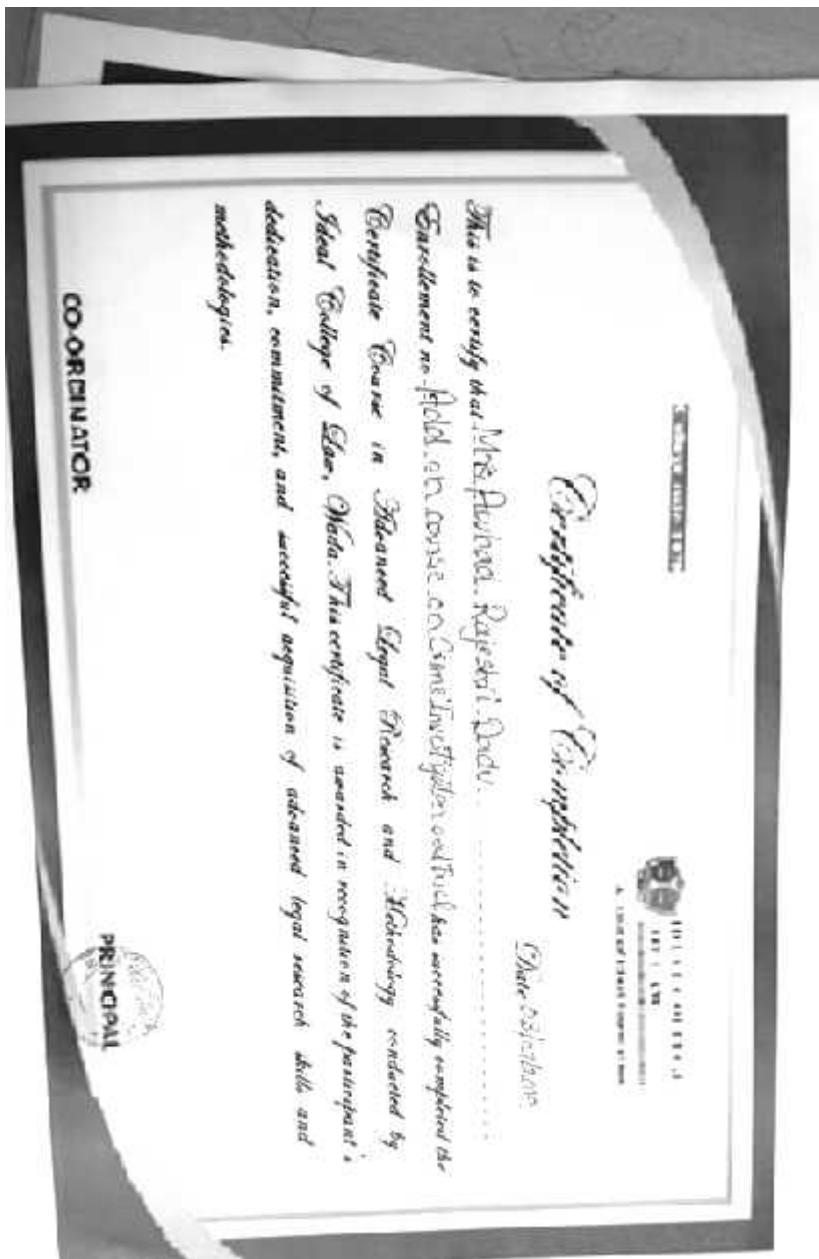 IDEAL COLLEGE
OF LAW
Certificate of Completion
Date 03/
This is to certify that Mrs. Rajeshri Dadu
Enrollement no. Add on course on Crime Investigation and Trial has successfully completed the
Certificate Course in Advanced Legal Research and Methodology conducted by
Ideal College of Law, Wada. This certificate is awarded in recognition of the participant's
dedication, commitment, and successful acquisition of advanced legal research skills and
methodologies.
CO-ORDINATOR
PRINCIPAL